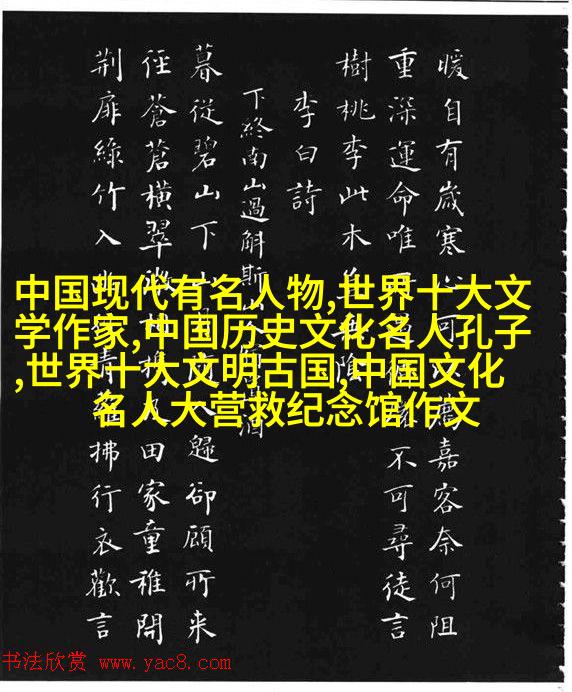 暖自有歲寒心可嘉客奈何阻
重深運命唯不可尋徒言
樹桃李此木
李白詩
下終南山過斛斯酒
暮從碧山下歸卻顧所来
徑蒼蒼橫翠田家童稚開
荆扉綠竹入拂行衣歡言
中国现代有名人物,世界十大文
学作家,中国历史文化名人孔子
,世界十大文明古国,中国文化
名人大营救纪念馆作文
书法欣赏 www.yac8.com